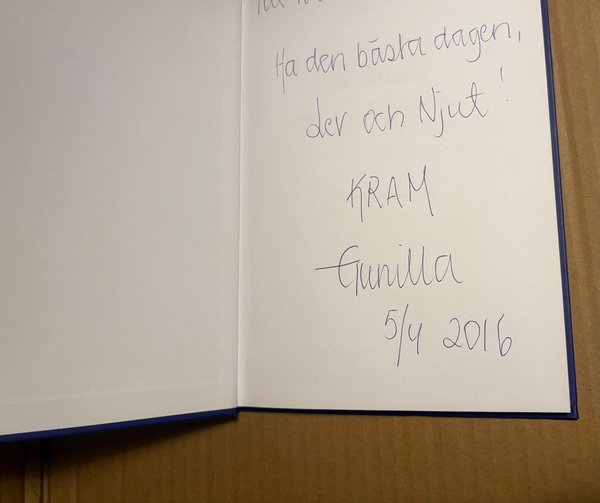 Ha den bästa dagen,
der och Njut!
KRAM
Gunilla
5/4 2016